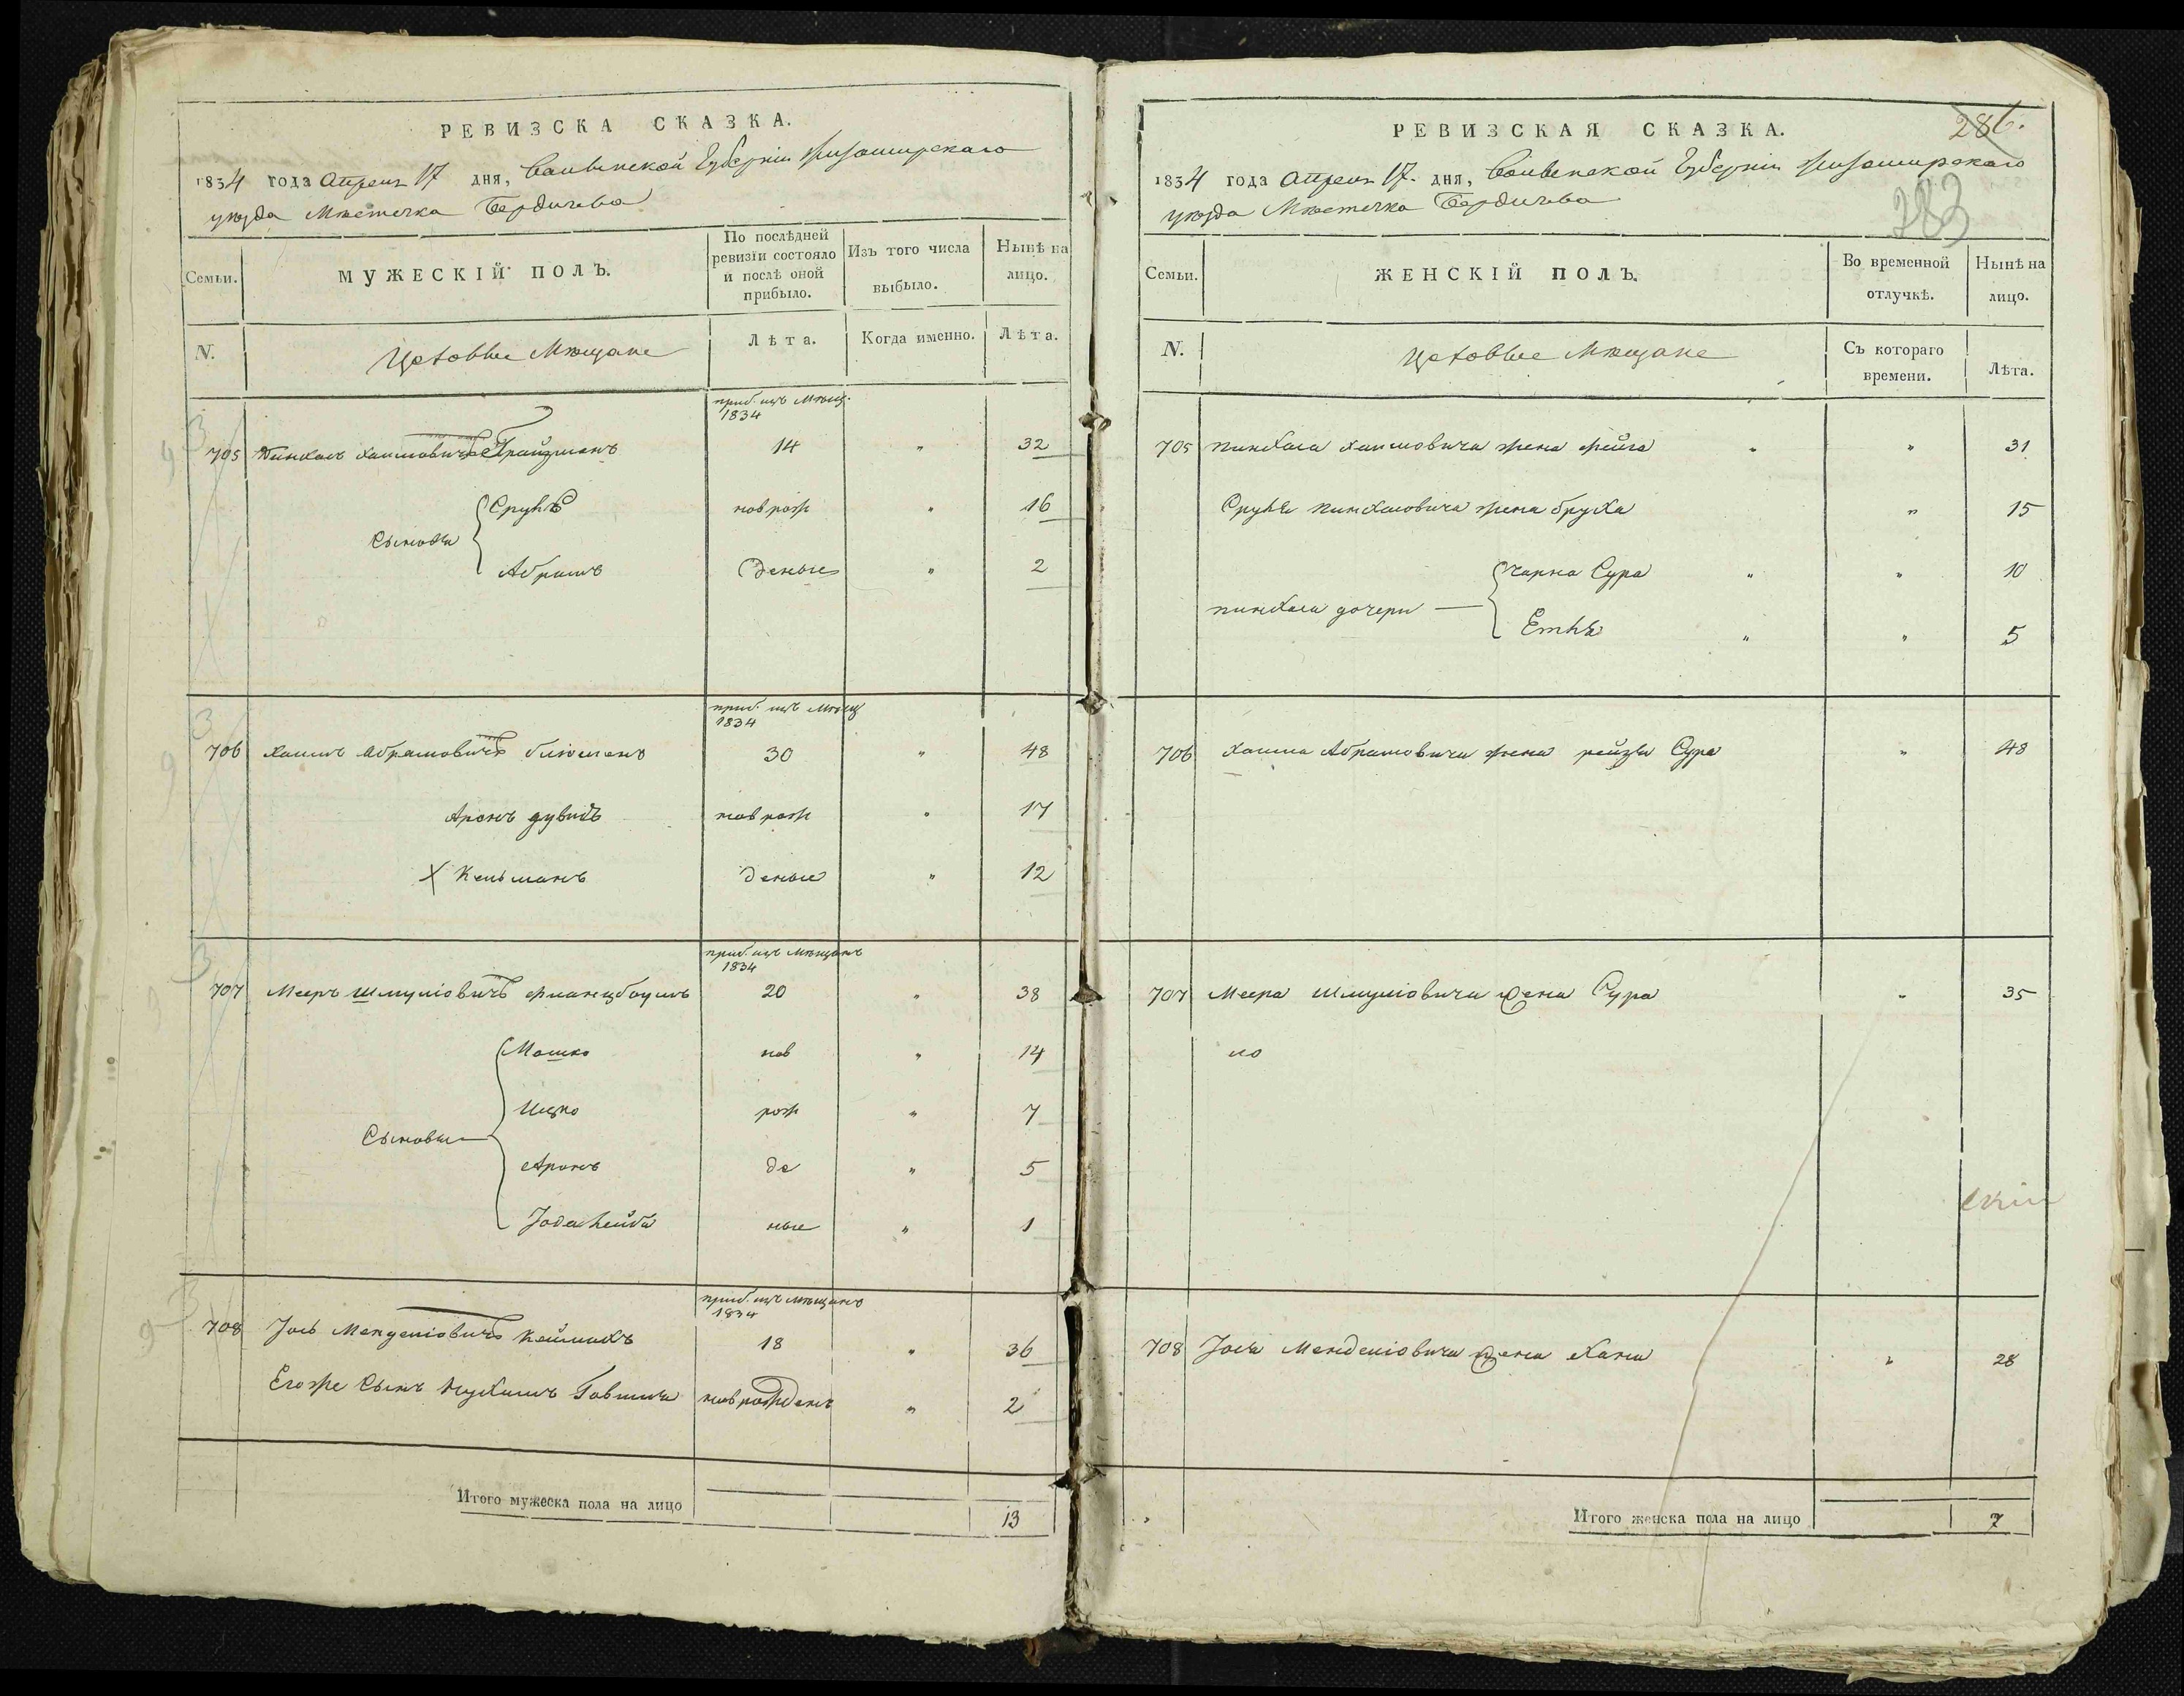 РЕВИЗСКА СКАЗКА.
1834 года Апреля 17 дня, Волынской Губерніи Житомирскаго
уѣзда Мѣстечка Бердичева
Семьи.
МУЖЕСКІЙ ПОЛЪ.
По послѣдней ревизіи состояло и послѣ оной прибыло.
Изъ того числа выбыло.
Нынѣ на лицо.
N.
Цеховые Мѣщане
Лѣта.
Когда именно.
Лѣта.
приб. изъ Мѣщ.
1834
705 Пинхасъ Хаимовичъ 14 " 32
Сыновья
Сруль новрож " 16
Абрамъ деные " 2
приб. изъ Мѣщ
1834
706 Хаимъ Абрамовичъ 30 " 48
Аронъ Дувидъ новрож " 17
Х Кельманъ деные " 12
приб. изъ Мѣщанъ
1834
707 Мееръ Шмуліовичъ Фланцбоумъ 20 " 38
Сыновья
Мошко нов " 14
Ицко рож " 7
Аронъ де " 5
Іода Лейба ные " 1
приб. изъ мѣщанъ
1834
708 Іось Менделіовичъ 18 " 36
Егоже Сынъ Нухимъ новрожденъ " 2
Итого мужеска пола на лицо 13
РЕВИЗСКАЯ СКАЗКА.
286.
283
1834 года Апреля 17. дня, Волынской Губерніи Житомирскаго
уѣзда Мѣстечка Бердичева
Семьи.
ЖЕНСКІЙ ПОЛЪ.
Во временной отлучкѣ.
Нынѣ на лицо.
N.
Цеховые Мѣщане
Съ котораго времени.
Лѣта.
705 Пинхаса Хаимовича жена Фейга " " 31
Сруля Пинхасовича жена Бруха " 15
Пинхаса дочери
Чарна Сура " " 10
Етля " " 5
706 Хаима Абрамовича жена Рейзя Сура " 48
707 Меера Шмуліовича жена Сура " 35
708 Іося Менделіовича жена Хана " 28
Итого женска пола на лицо 7